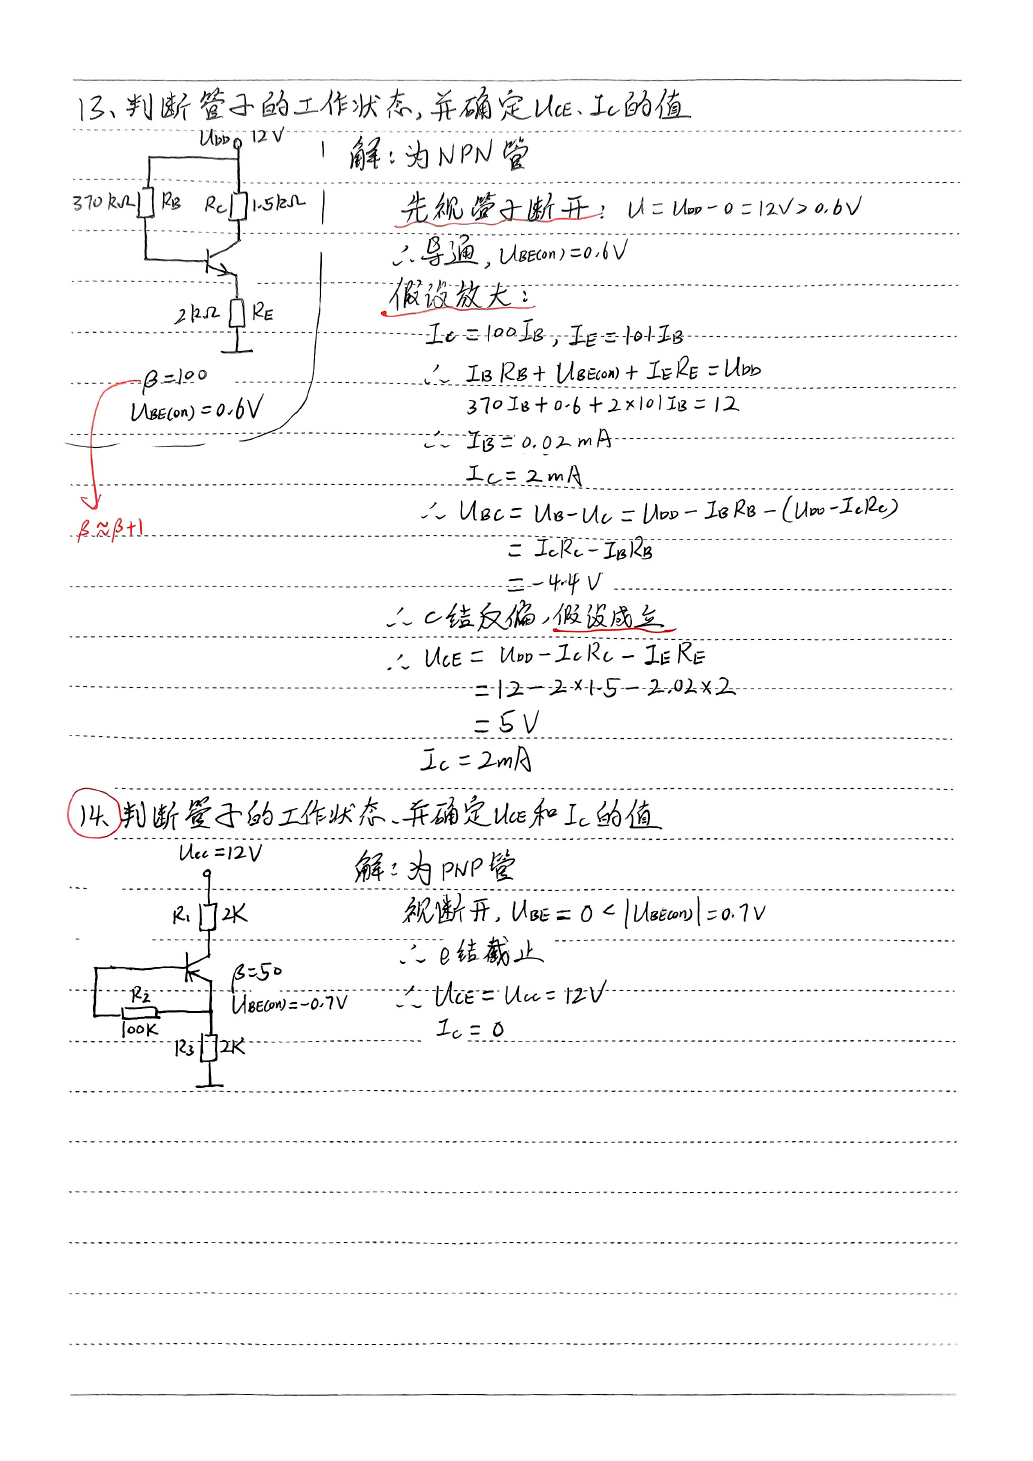 13、判断管子的工作状态,并确定UCE、IC的值
UDD 12V
370kΩ RB RC 1.5kΩ
2kΩ RE
β=100
UBE(on)=0.6V
β≈β+1
解:为NPN管
先视管子断开: U=UDD-0=12V>0.6V
∴导通, UBE(on)=0.6V
假设放大:
IC=100IB, IE=101IB
∴ IBRB+UBE(on)+IERE=UDD
370IB+0.6+2×101IB=12
∴ IB=0.02mA
IC=2mA
∴ UBC=UB-UC=UDD-IBRB-(UDD-ICRC)
=ICRC-IBRB
=-4.4V
∴ c结反偏,假设成立
∴ UCE=UDD-ICRC-IERE
=12-2×1.5-2.02×2
=5V
IC=2mA
14、判断管子的工作状态、并确定UCE和IC的值
UCC=12V
R1 2K
β=50
UBE(on)=-0.7V
R2
100K
R3 2K
解:为PNP管
视断开, UBE=0<|UBE(on)|=0.7V
∴ e结截止
∴ UCE=UCC=12V
IC=0